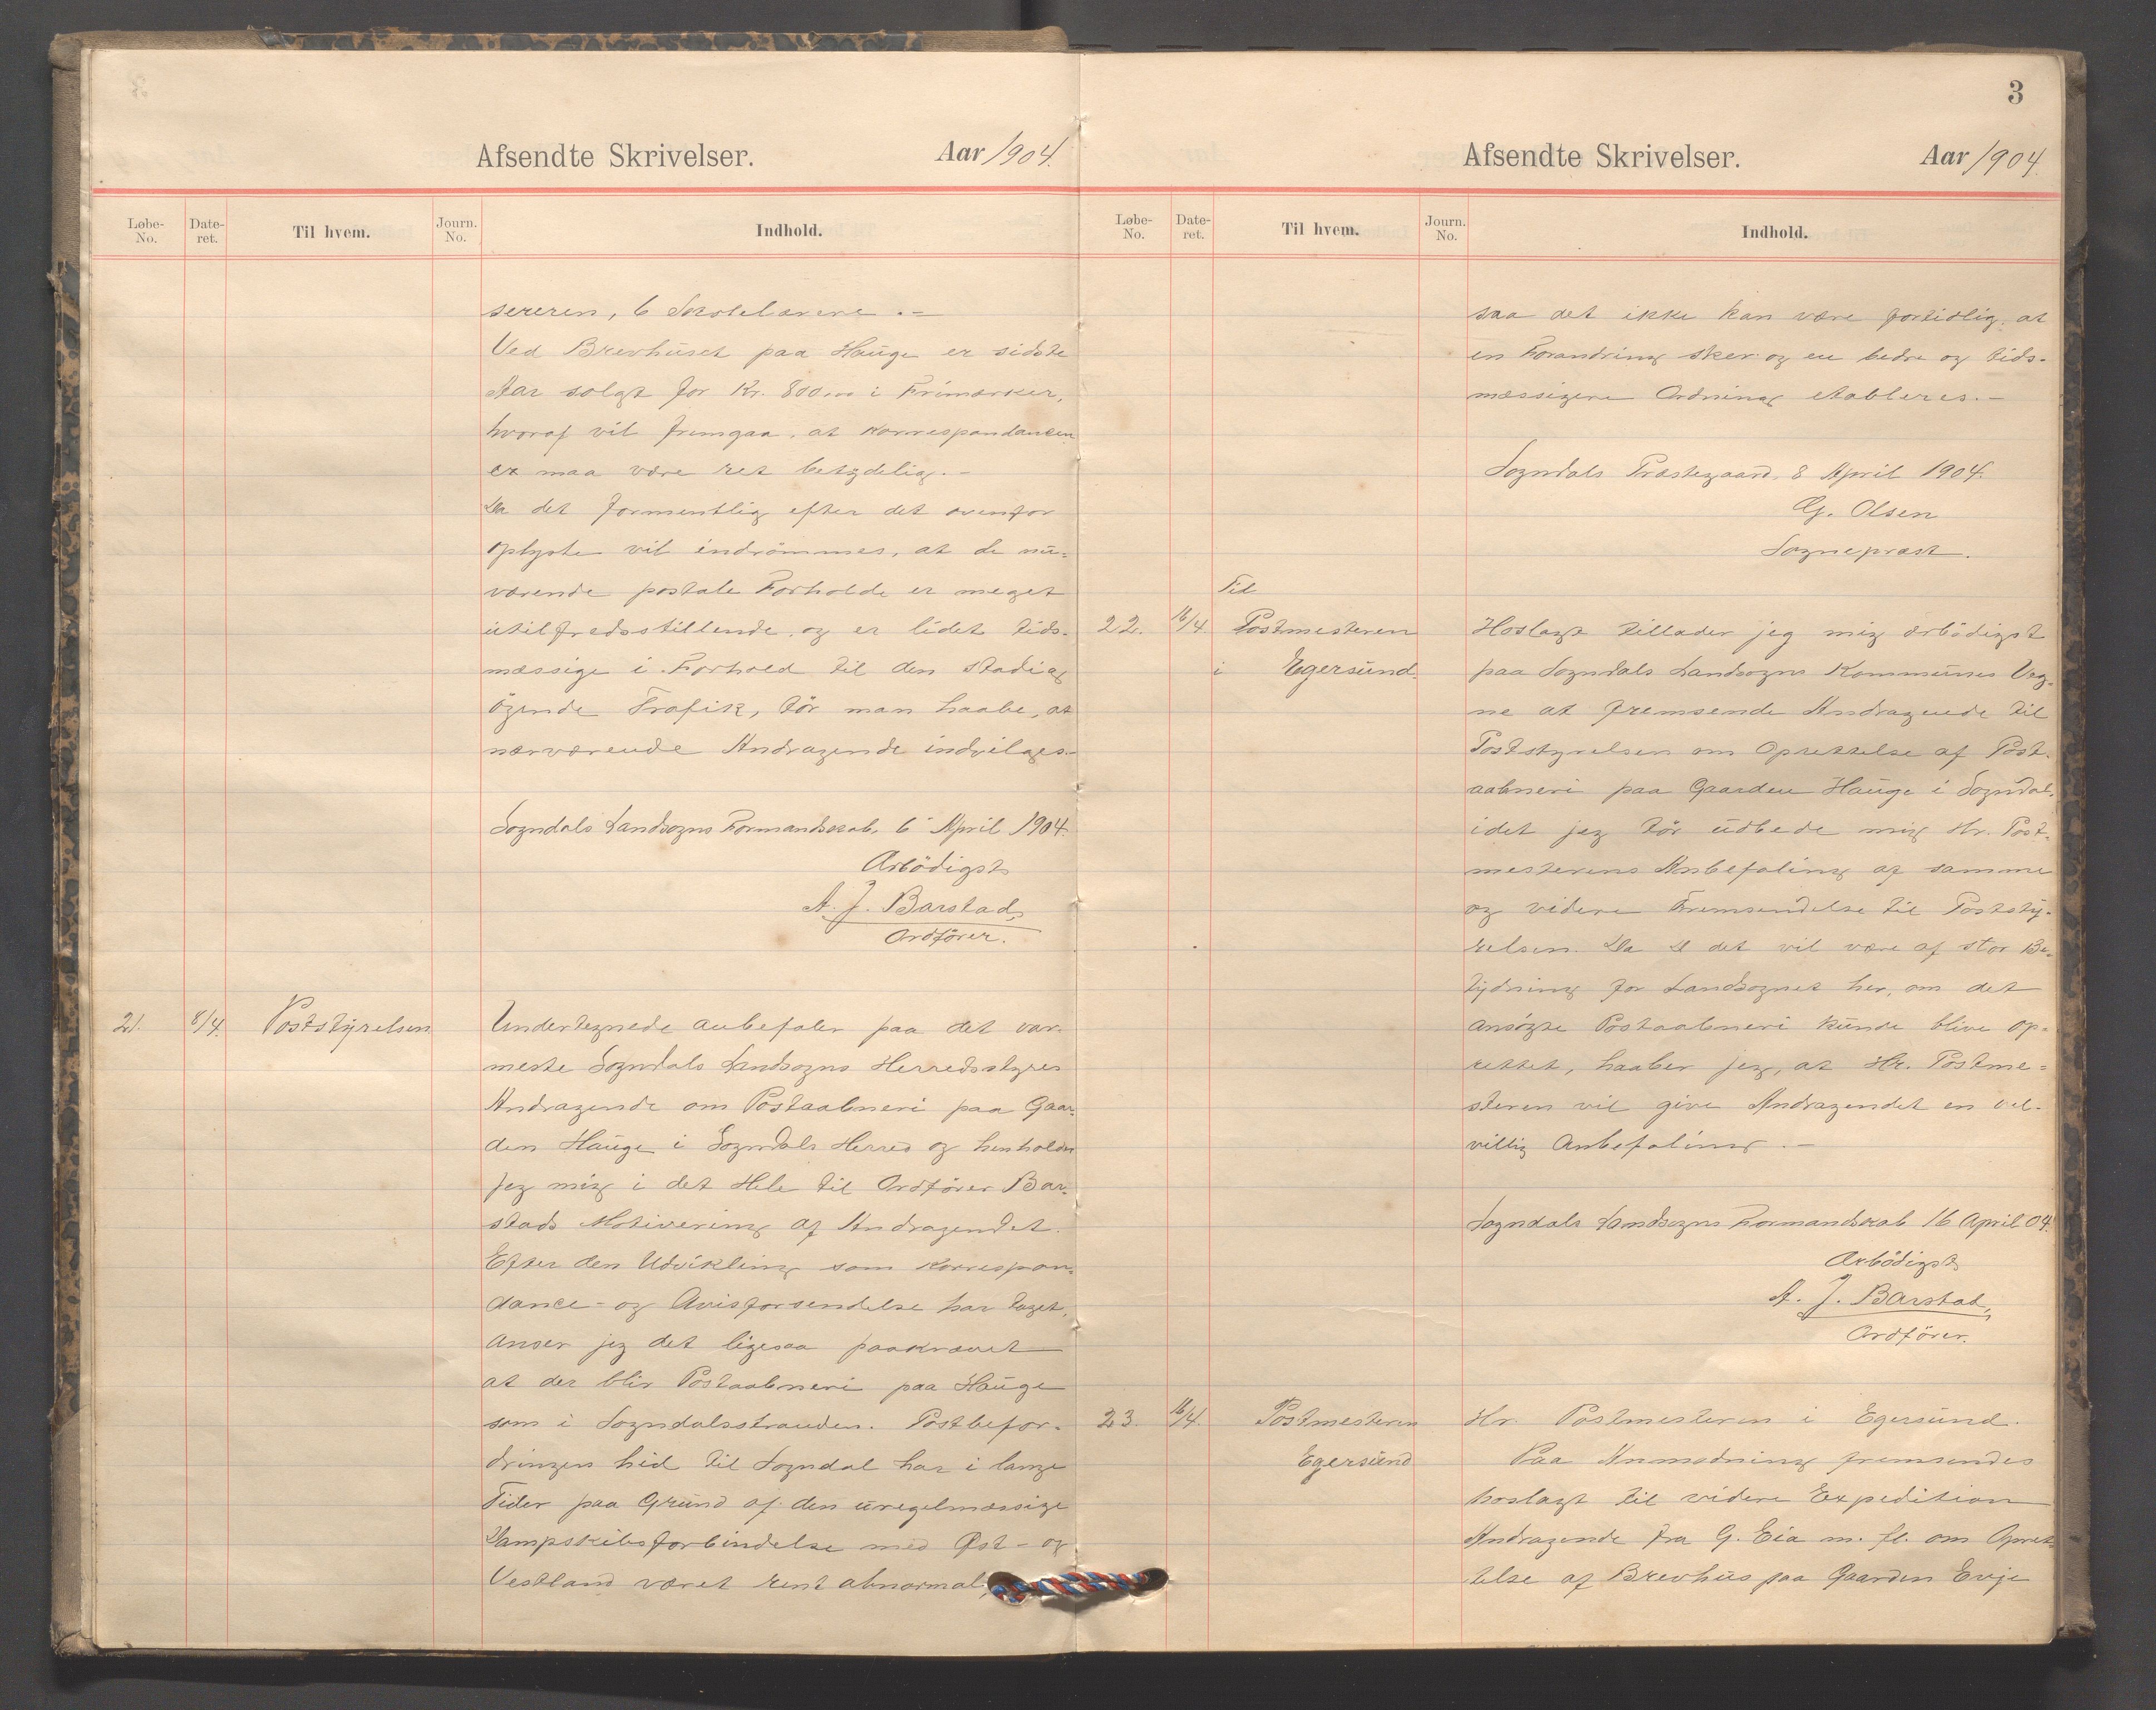 Afsendte Skrivelser. Aar 1904.
Løbe-No. Date-ret. Til hvem. Journ. No. Indhold.
sereren, 6 Skolelærere .-
Ved Brevhuset paa Hauge er sidste
Aar solgt for Kr. 800,00 i Frimærker,
hvoraf vil fremgaa, at Korrespondancen
er maa være ret betydelig.-
Da det formentlig efter det ovenfor
oplyste vil indrømmes, at de nu-
værende postale Forholde er meget
utilfredsstillende, og er lidet tids-
mæssige i Forhold til den stadig
øgende Trafik, tør man haabe, at
nærværende Andragende indvilges.-
Sogndals Landsogns Formandskab, 6 April 1904.
Ærbødigst
A. J. Barstad,
Ordfører.
21. 8/4. Poststyrelsen Undertegnede anbefaler paa det var-
meste Sogndals Landsogns Herredsstyres
Andragende om Postaabneri paa Gaar-
den Hauge i Sogndals Herred og henholder
jeg mig i det Hele til Ordfører Bar-
stads Motivering af Andragendet.
Efter den Udvikling som Korrespon-
dance- og Avisforsendelse har taget,
anser jeg det ligesaa paakrævet
at der blir Postaabneri paa Hauge
som i Sogndalsstranden. Postbefor-
dringen hid til Sogndal har i lange
Tider paa Grund af den uregelmæssige
Dampskibsforbindelse med Øst- og
Vestland været rent abnormal,
3
Afsendte Skrivelser. Aar 1904.
Løbe-No. Date-ret. Til hvem. Journ. No. Indhold.
saa det ikke kan være fortidlig, at
en Forandring sker og en bedre og tids-
mæssigere Ordning etableres.-
Sogndals Præstegaard, 8 April 1904.
G. Olsen
Sogneprest.
Til
22. 16/4. Postmesteren Hoslagt tillader jeg mig ærbødigst
i Egersund. paa Sogndals Landsogns Kommunes Veg-
ne at fremsende Andragende til
Poststyrelsen om Oprettelse af Post-
aabneri paa Gaarden Hauge i Sogndal,
idet jeg tør udbede mig Hr. Post-
mesterens Anbefaling af samme
og videre Fremsendelse til Poststy-
relsen. Da det vil være af stor Be-
tydning for Landsognet her, om det
ansøgte Postaabneri kunde blive op-
rettet, haaber jeg, at Hr. Postme-
steren vil give Andragendet en vel-
villig Anbefaling.-
Sogndals Landsogns Formandskab 16 April 04.
Ærbødigst
A. J. Barstad,
Ordfører.
23. 16/4. Postmesteren Hr. Postmesteren i Egersund.
Egersund Paa Anmodning fremsendes
hoslagt til videre Expedition
Andragende fra G. Eia m. fl. om Opret-
telse af Brevhus paa Gaarden Evje